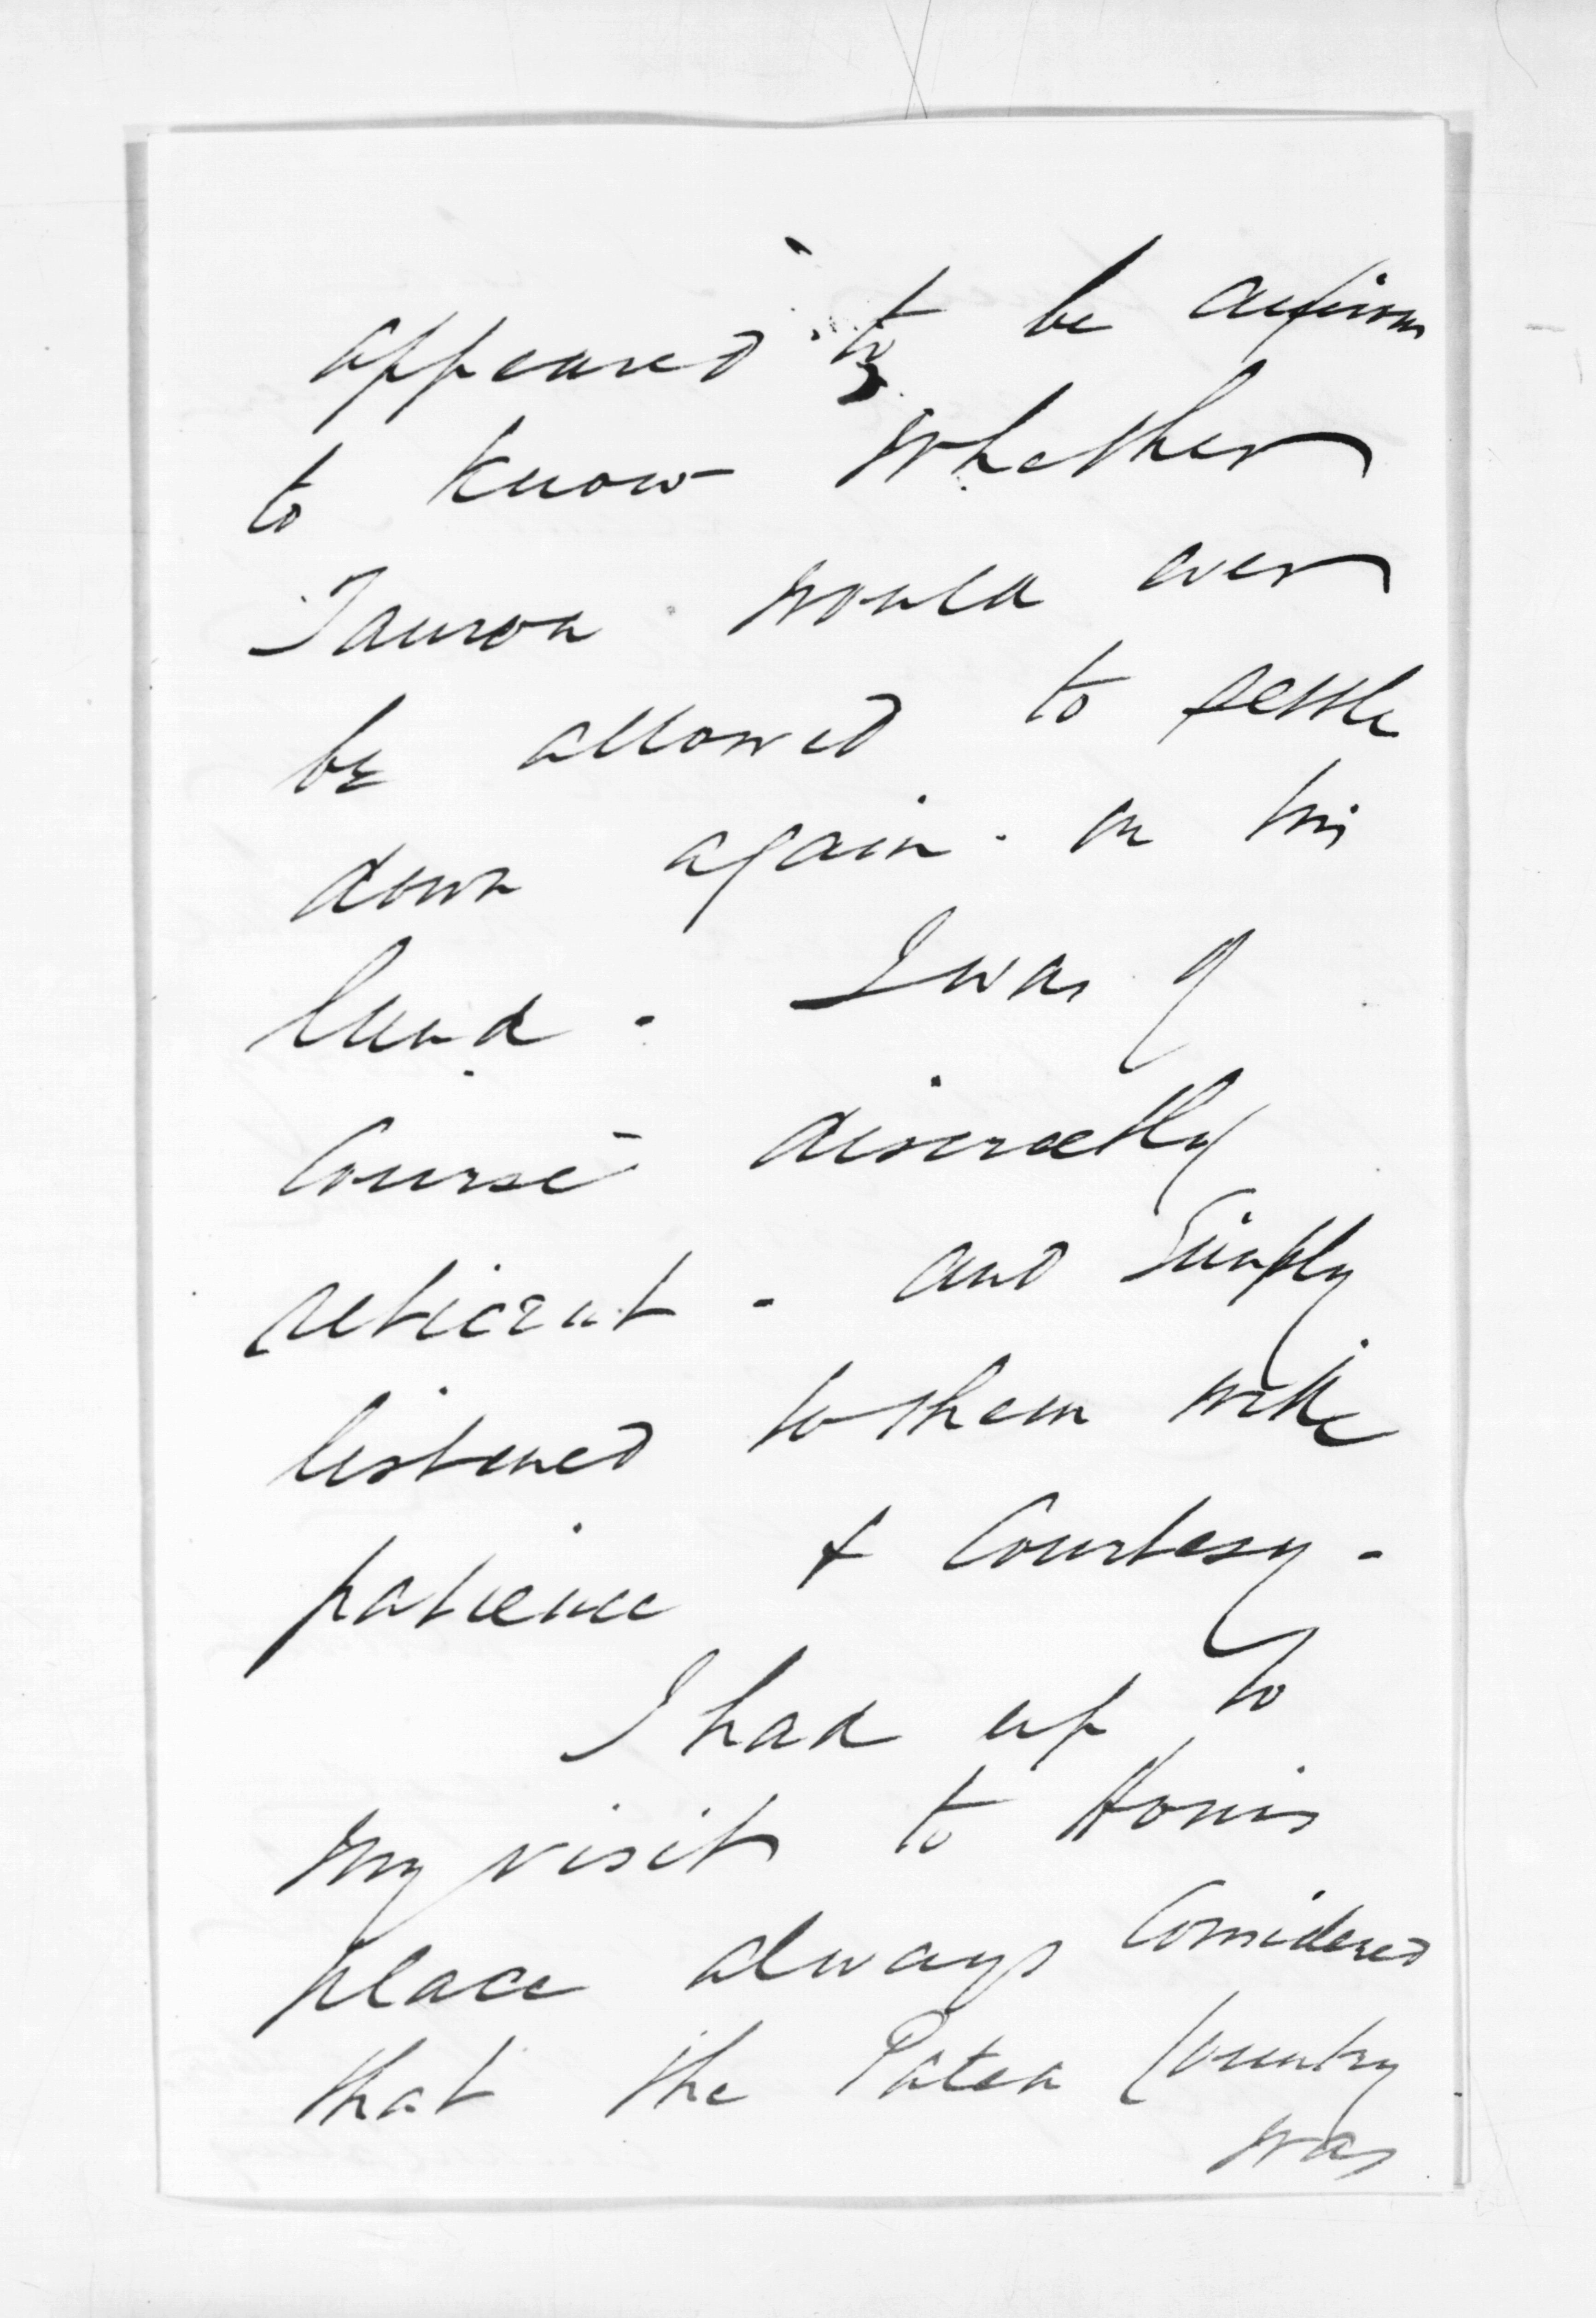 appeared to be anxious
to know whether
Tauroa would ever
be allowed to settle
down again - on his
land - I was of
Course discreetly
reticent - and Simply
listened to them with
patience & Courtesy -
I had up to
my visit to Honi's
place always Considered
that the Patea Country
was